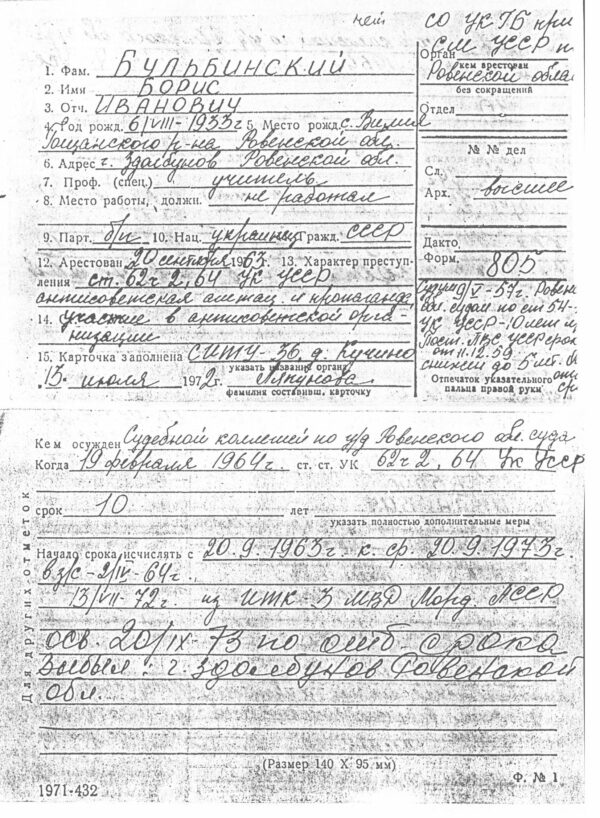 чем
СО УКГБ при
СМ УССР п
Орган
кем арестован
Ровенской обла
без сокращений
Отдел
№ № дел
Сл.
Арх. высшее
Дакто
Форм. 805
Судим 9/V-57г. Ровен
обл. судом по ст 54-
УК УССР - 10 лет
Пост. ПВС УССР срок
от 11.12.59
снижен до 5 лет.
Отпечаток указательного
пальца правой руки
1. Фам. БУЛЬБИНСКИЙ
2. Имя БОРИС
3. Отч. ИВАНОВИЧ
4. Год рожд. 6/VIII-1933г 5. Место рожд. с.
Гощанского р-на Ровенской обл.
6. Адрес г. Здолбунов Ровенской обл.
7. Проф. (спец.) учитель
8. Место работы, должн. не работал
9. Парт. б/п 10. Нац. украинец Гражд. СССР
12. Арестован 20 сентября 1963г. 13. Характер преступ-
ления ст. 62ч 2, 64 УК УССР
антисоветская агитац. и пропаганда,
14. участие в антисоветской орга-
низации
15. Карточка заполнена СИТУ-36, д. Кучино
указать название органа
13. июля 1972г. Ляпунова
фамилия составивш. карточку
Кем осужден Судебной коллегией по у/д Ровенского обл. суда
Когда 19 февраля 1964г. ст. ст. УК 62ч 2, 64 УК УССР
срок 10 лет
указать полностью дополнительные меры
Начало срока исчислять с 20.9.1963г. к. ср. 20.9.1973г.
в з/с - 2/IV-64г.
13/VII-72г. из ИТК-3 МВД Морд. АССР
осв. 20/IX-73 по отб. срока
Выбыл: г. Здолбунов Ровенской
обл.
Для других отметок
(Размер 140 X 95 мм)
Ф. № 1
1971-432